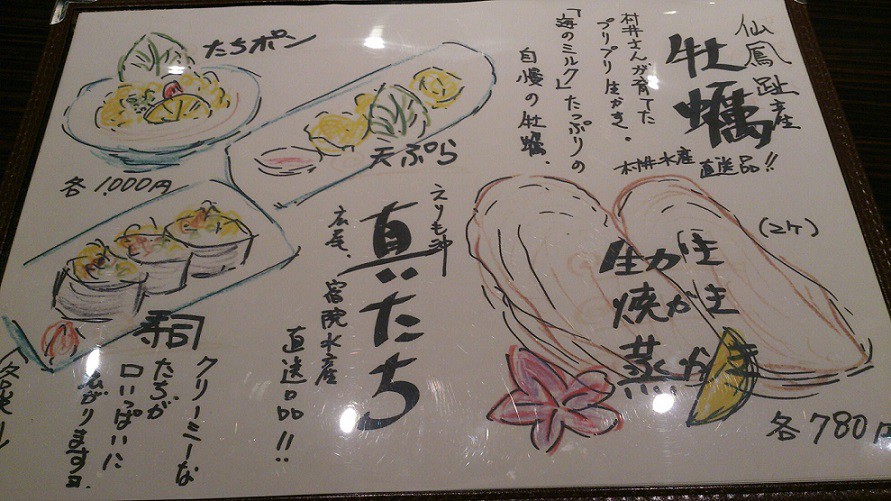 仙鳳趾産
牡蠣
村井さんが育てた
プリプリ生かき。
「海のミルク」たっぷりの
自慢の牡蠣、
村井水産 直送品!!
(2ケ)
生がき
焼がき
蒸かき
各780円
たちポン
天ぷら
各1,000円
えりも沖
真たち
広尾、宿院水産
直送品!!
寿司
クリーミーな
たちが
口いっぱいに
広がります